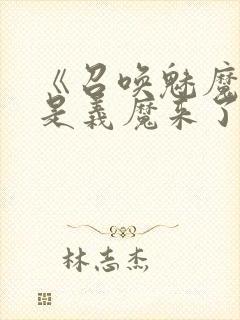 《召唤魅魔
是义魔来了
林志杰